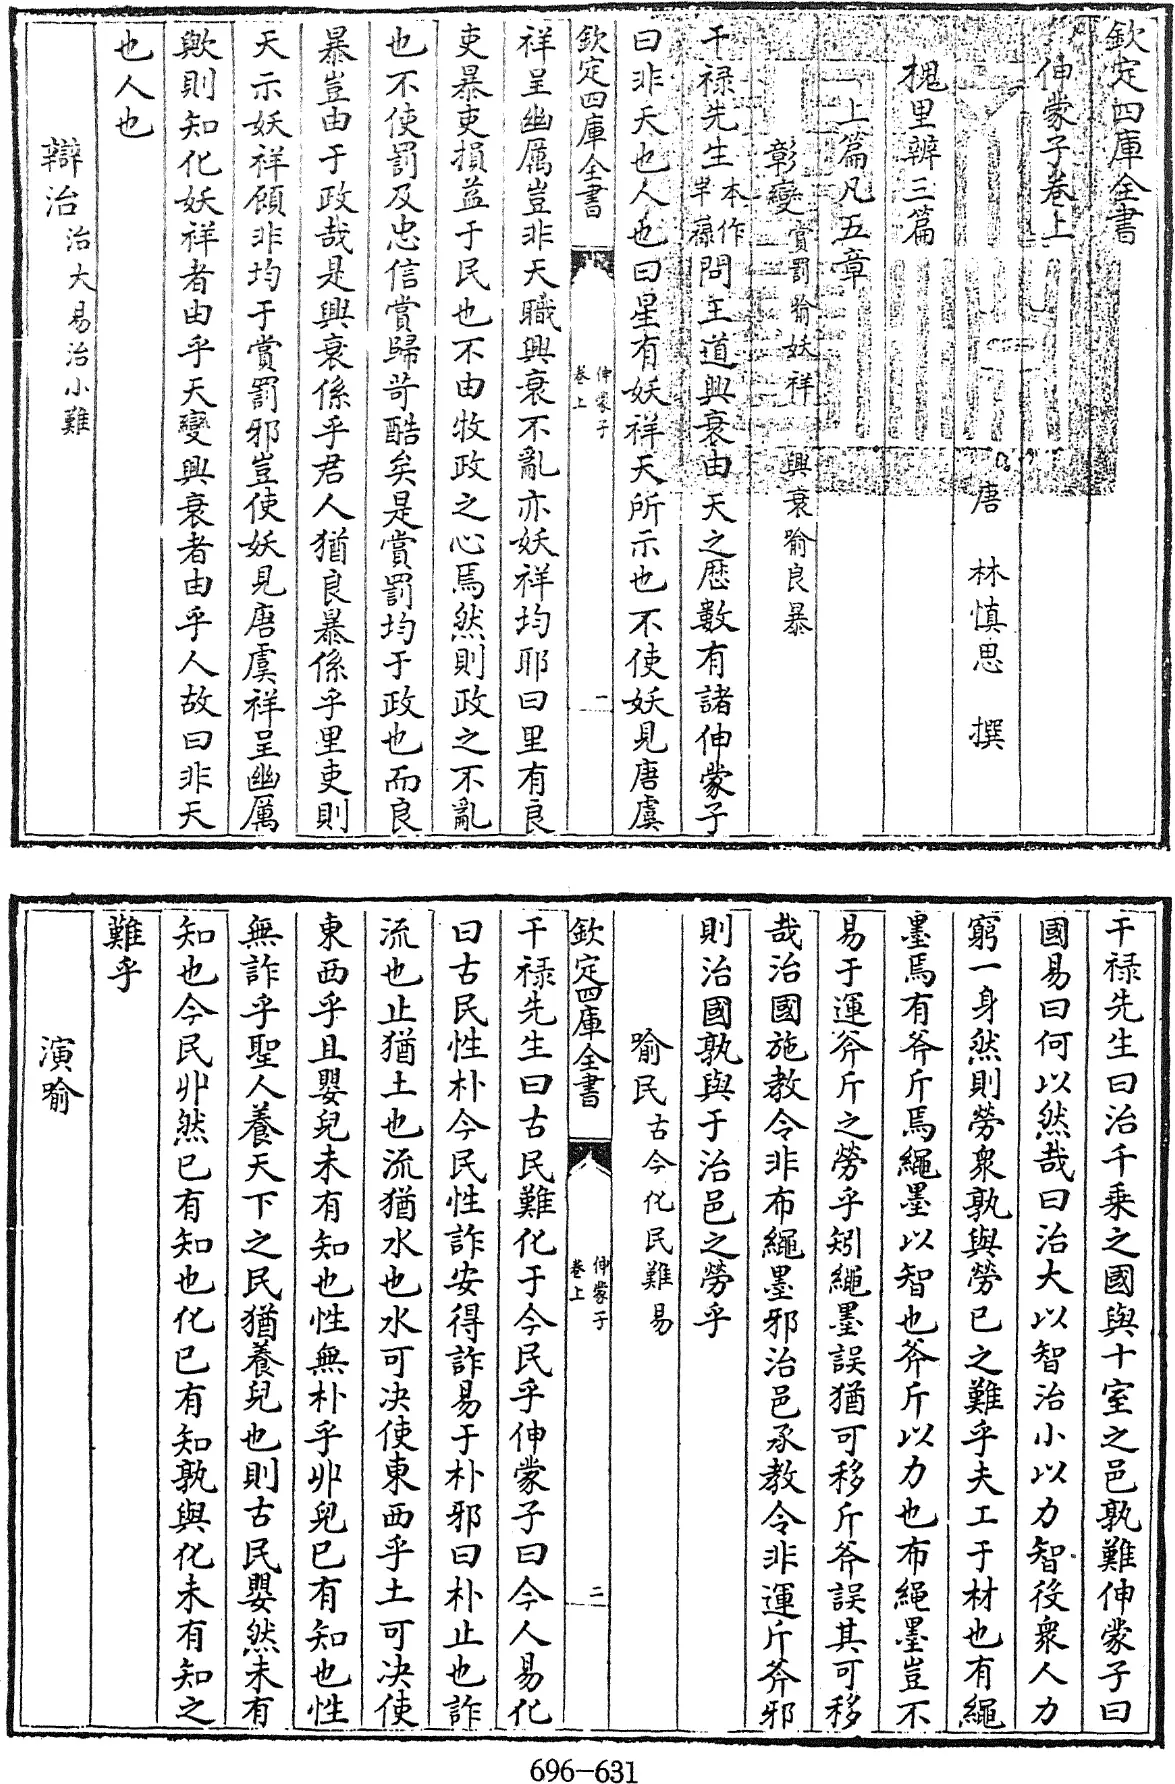 欽定四庫全書
伸蒙子卷上
唐 林慎思 撰
槐里辨三篇
上篇凡五章
彰變賞罰喻妖祥 興衰喻良暴
干禄先生本作芉祿問王道興衰由天之歴數有諸伸蒙子
曰非天也人也曰星有妖祥天所示也不使妖見唐虞
欽定四庫全書
伸蒙子
卷上
一
祥呈幽厲豈非天職興衰不亂亦妖祥均耶曰里有良
吏暴吏損益于民也不由牧政之心焉然則政之不亂
也不使罰及忠信賞歸苛酷矣是賞罰均于政也而良
暴豈由于政哉是興衰係乎君人猶良暴係乎里吏則
天示妖祥顧非均于賞罰邪豈使妖見唐虞祥呈幽厲
歟則知化妖祥者由乎天變興衰者由乎人故曰非天
也人也
辯治治大易治小難
干禄先生曰治千乗之國與十室之邑孰難伸蒙子曰
國易曰何以然哉曰治大以智治小以力智役衆人力
窮一身然則勞衆孰與勞已之難乎夫工于材也有繩
墨焉有斧斤焉繩墨以智也斧斤以力也布繩墨豈不
易于運斧斤之勞乎矧繩墨誤猶可移斤斧誤其可移
哉治國施教令非布繩墨邪治邑承教令非運斤斧邪
則治國孰與于治邑之勞乎
喻民古今化民難易
欽定四庫全書
伸蒙子
卷上
二
干禄先生曰古民難化于今民乎伸蒙子曰今人易化
曰古民性朴今民性詐安得詐易于朴邪曰朴止也詐
流也止猶土也流猶水也水可决使東西乎土可决使
東西乎且嬰兒未有知也性無朴乎丱兒已有知也性
無詐乎聖人養天下之民猶養兒也則古民嬰然未有
知也今民丱然已有知也化已有知孰與化未有知之
難乎
演喻
696-631